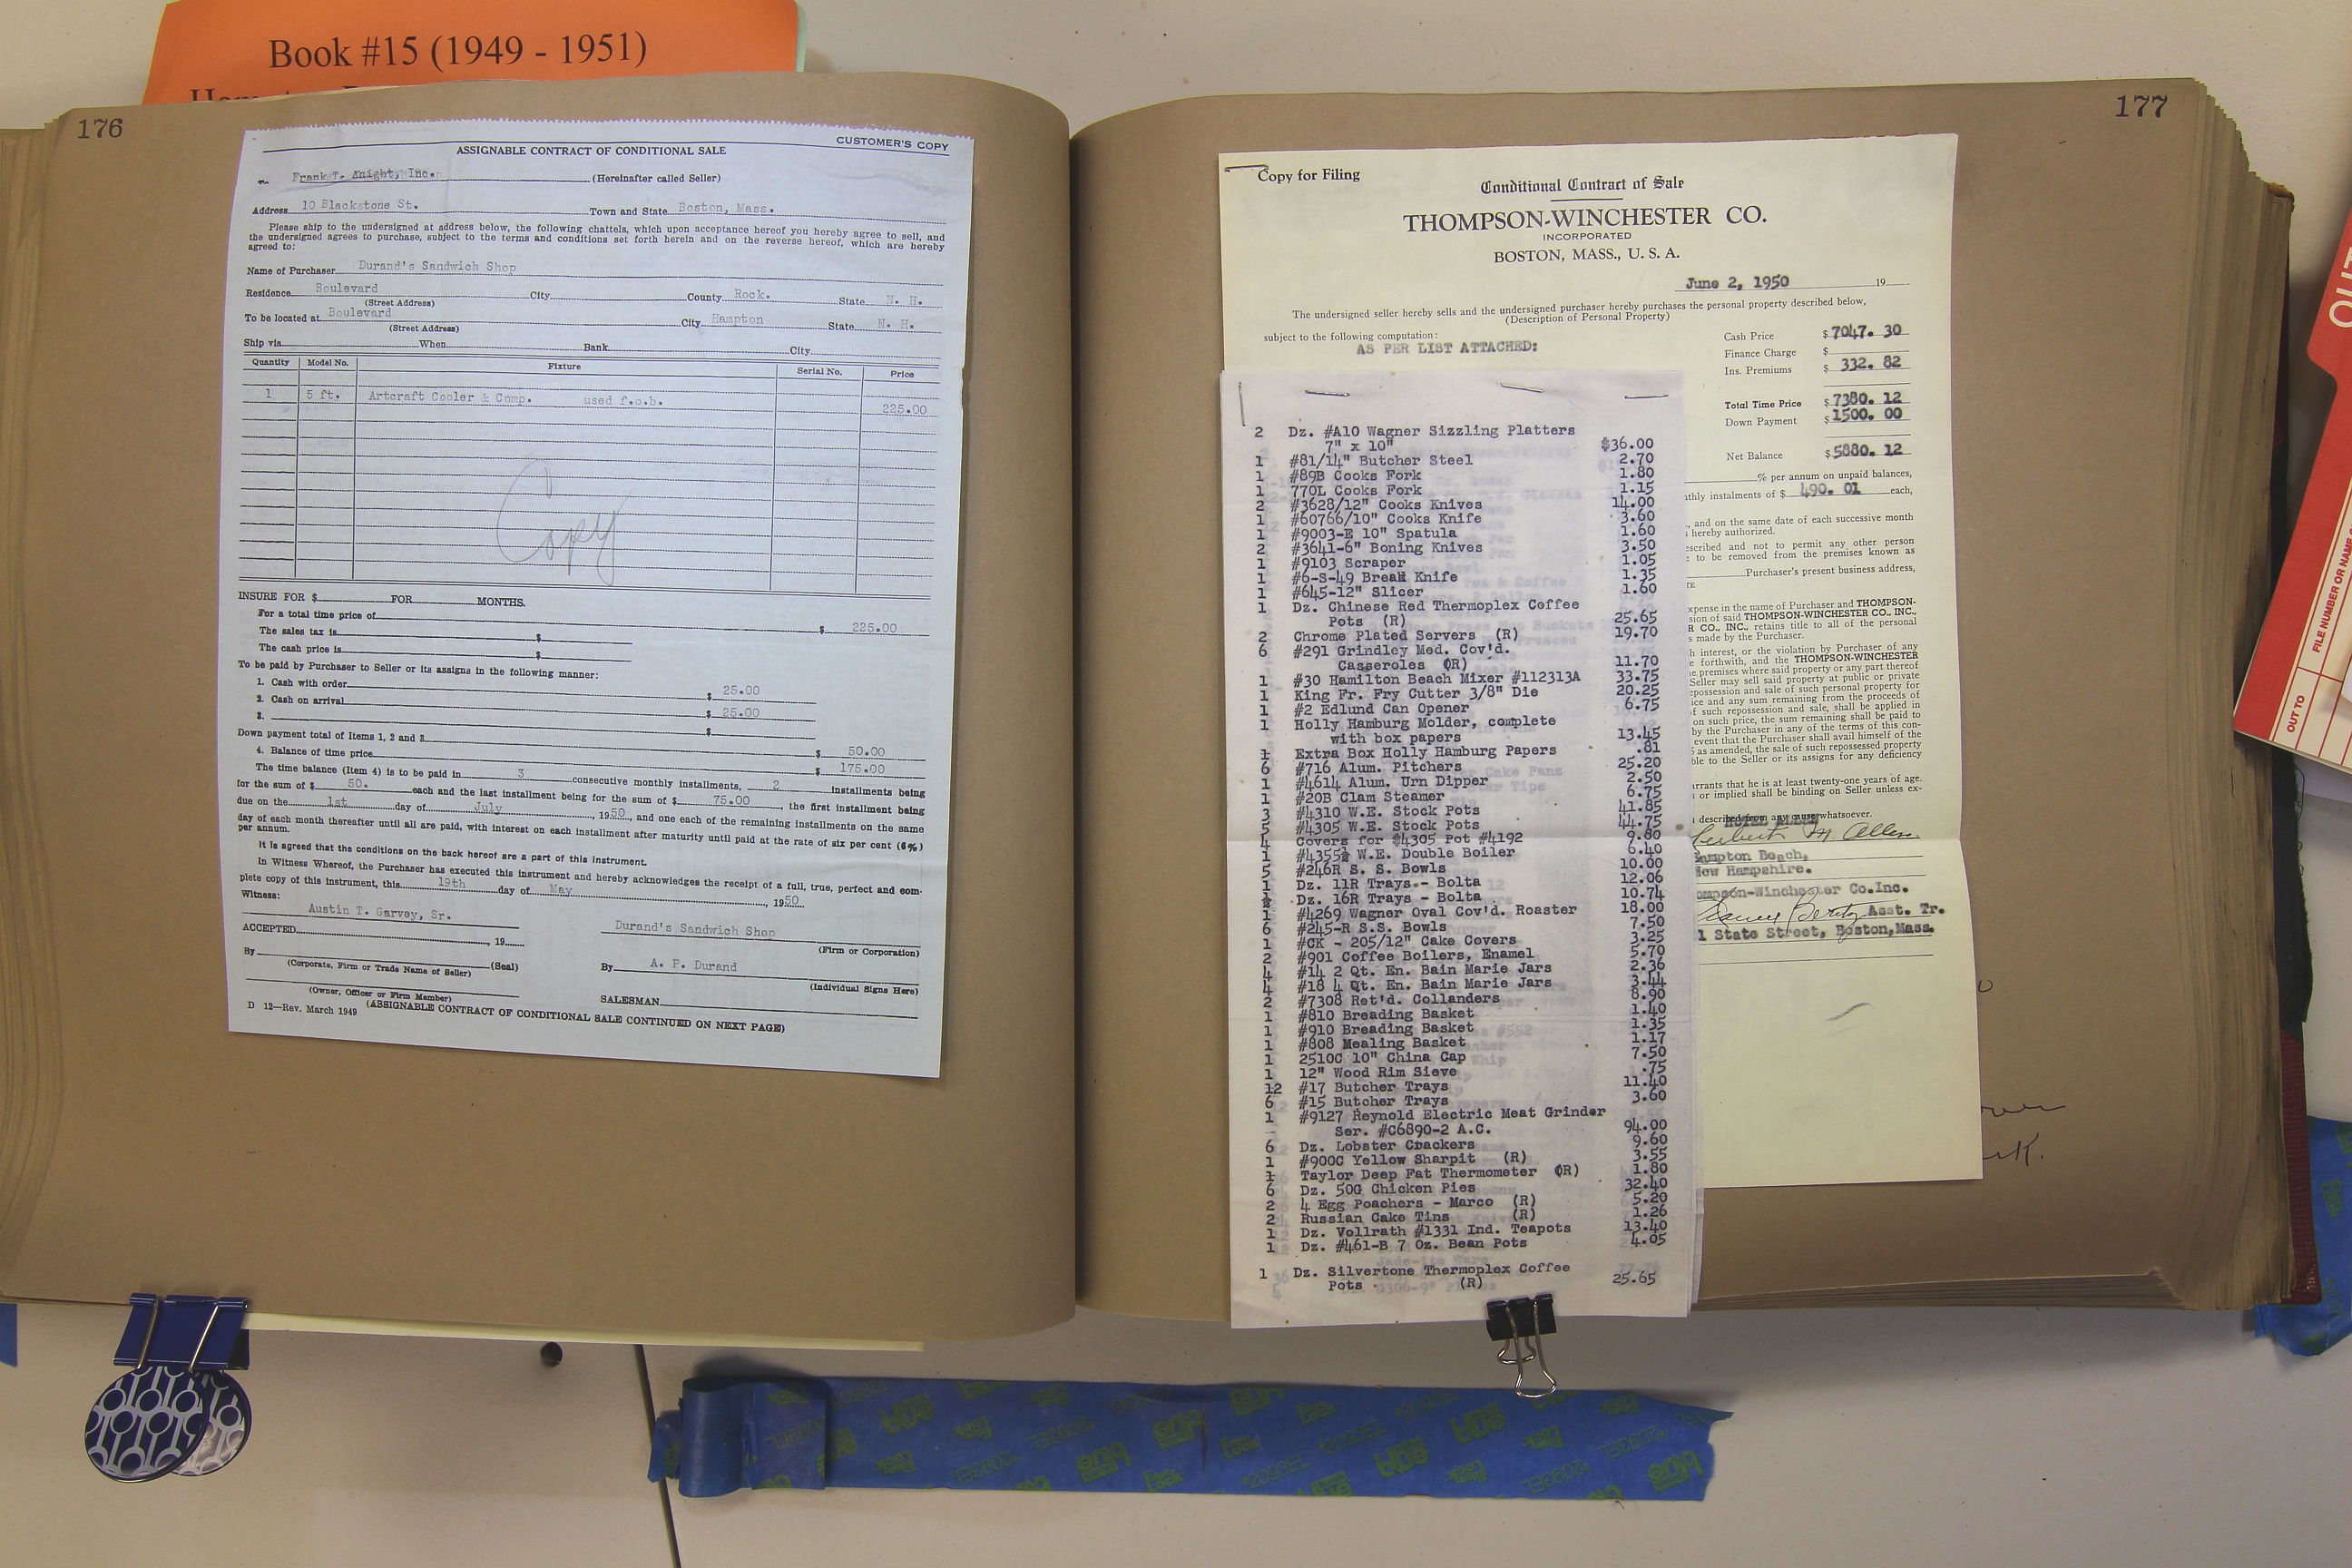 Book #15 (1949 - 1951)
176
CUSTOMER'S COPY
ASSIGNABLE CONTRACT OF CONDITIONAL SALE
To Frank T. Knight, Inc. (Hereinafter called Seller)
Address 10 Blackstone St. Town and State Boston, Mass.
Please ship to the undersigned at address below, the following chattels, which upon acceptance hereof you hereby agree to sell, and
the undersigned agrees to purchase, subject to the terms and conditions set forth herein and on the reverse hereof, which are hereby
agreed to:
Name of Purchaser Durand's Sandwich Shop
Residence Boulevard City County Rock. State N. H.
(Street Address)
To be located at Boulevard City Hampton State N. H.
(Street Address)
Ship via When Bank City
Quantity Model No. Fixture Serial No. Price
1 5 ft. Artcraft Cooler & Comp. used f.o.b. 225.00
Copy
INSURE FOR $ FOR MONTHS.
For a total time price of $ 225.00
The sales tax is $
The cash price is $
To be paid by Purchaser to Seller or its assigns in the following manner:
1. Cash with order $ 25.00
2. Cash on arrival $ 25.00
3. $
Down payment total of Items 1, 2 and 3 $ 50.00
4. Balance of time price $ 175.00
The time balance (Item 4) is to be paid in 3 consecutive monthly installments, 2 installments being
for the sum of $ 50. each and the last installment being for the sum of $ 75.00, the first installment being
due on the 1st day of July, 1950, and one each of the remaining installments on the same
day of each month thereafter until all are paid, with interest on each installment after maturity until paid at the rate of six per cent (6%)
per annum.
It is agreed that the conditions on the back hereof are a part of this instrument.
In Witness Whereof, the Purchaser has executed this instrument and hereby acknowledges the receipt of a full, true, perfect and com-
plete copy of this instrument, this 19th day of May, 1950
Witness:
Austin T. Garvey, Sr.
Durand's Sandwich Shop
ACCEPTED , 19
(Firm or Corporation)
By (Seal)
(Corporate, Firm or Trade Name of Seller)
By A. P. Durand
(Individual Signs Here)
(Owner, Officer or Firm Member)
SALESMAN
D 12—Rev. March 1949 (ASSIGNABLE CONTRACT OF CONDITIONAL SALE CONTINUED ON NEXT PAGE)
177
Copy for Filing
Conditional Contract of Sale
THOMPSON-WINCHESTER CO.
INCORPORATED
BOSTON, MASS., U. S. A.
June 2, 1950 19
The undersigned seller hereby sells and the undersigned purchaser hereby purchases the personal property described below,
(Description of Personal Property)
subject to the following computation:
AS PER LIST ATTACHED:
Cash Price $ 7047. 30
Finance Charge $
Ins. Premiums $ 332. 82
Total Time Price $ 7380. 12
Down Payment $ 1500. 00
Net Balance $ 5880. 12
% per annum on unpaid balances,
thly instalments of $ 490. 01 each,
, and on the same date of each successive month
hereby authorized.
escribed and not to permit any other person
e to be removed from the premises known as
Purchaser's present business address,
xpense in the name of Purchaser and THOMPSON-
sion of said THOMPSON-WINCHESTER CO., INC.,
R CO., INC., retains title to all of the personal
s made by the Purchaser.
h interest, or the violation by Purchaser of any
e forthwith, and the THOMPSON-WINCHESTER
e premises where said property or any part thereof
Seller may sell said property at public or private
possession and sale of such personal property for
ice and any sum remaining from the proceeds of
f such repossession and sale, shall be applied in
on such price, the sum remaining shall be paid to
by the Purchaser in any of the terms of this con-
event that the Purchaser shall avail himself of the
as amended, the sale of such repossessed property
ble to the Seller or its assigns for any deficiency
arrants that he is at least twenty-one years of age.
s or implied shall be binding on Seller unless ex-
described from any cause whatsoever.
M. Allen
Hampton Beach,
New Hampshire.
ompson-Winchester Co.Inc.
Asst. Tr.
1 State Street, Boston,Mass.
2 Dz. #A10 Wagner Sizzling Platters
7" x 10" $36.00
1 #81/14" Butcher Steel 2.70
1 #89B Cooks Fork 1.80
1 770L Cooks Fork 1.15
2 #3628/12" Cooks Knives 14.00
1 #60766/10" Cooks Knife 3.60
1 #9003-E 10" Spatula 1.60
2 #3641-6" Boning Knives 3.50
1 #9103 Scraper 1.05
1 #6-S-49 Bread Knife 1.35
1 #645-12" Slicer 1.60
1 Dz. Chinese Red Thermoplex Coffee
Pots (R) 25.65
2 Chrome Plated Servers (R) 19.70
6 #291 Grindley Med. Cov'd.
Casseroles (R) 11.70
1 #30 Hamilton Beach Mixer #112313A 33.75
1 King Fr. Fry Cutter 3/8" Die 20.25
1 #2 Edlund Can Opener 6.75
1 Holly Hamburg Molder, complete
with box papers 13.45
1 Extra Box Holly Hamburg Papers .81
6 #716 Alum. Pitchers 25.20
1 #4614 Alum. Urn Dipper 2.50
1 #20B Clam Steamer 6.75
3 #4310 W.E. Stock Pots 41.85
5 #4305 W.E. Stock Pots 44.75
4 Covers for $4305 Pot #4192 9.80
1 #4355½ W.E. Double Boiler 6.40
5 #246R S. S. Bowls 10.00
1 Dz. 11R Trays - Bolta 12.06
½ Dz. 16R Trays - Bolta 10.74
1 #4269 Wagner Oval Cov'd. Roaster 18.00
6 #245-R S.S. Bowls 7.50
1 #CK - 205/12" Cake Covers 3.25
2 #901 Coffee Boilers, Enamel 5.70
4 #14 2 Qt. En. Bain Marie Jars 2.36
4 #18 4 Qt. En. Bain Marie Jars 3.44
2 #7308 Ret'd. Collanders 8.90
1 #810 Breading Basket 1.40
1 #910 Breading Basket 1.35
1 #808 Mealing Basket 1.17
1 2510C 10" China Cap 7.50
1 12" Wood Rim Sieve .75
12 #17 Butcher Trays 11.40
6 #15 Butcher Trays 3.60
1 #9127 Reynold Electric Meat Grinder
Ser. #C6890-2 A.C. 94.00
6 Dz. Lobster Crackers 9.60
1 #900C Yellow Sharpit (R) 3.55
1 Taylor Deep Fat Thermometer (R) 1.80
6 Dz. 50G Chicken Pies 32.40
2 4 Egg Poachers - Marco (R) 5.20
2 Russian Cake Tins (R) 1.26
1 Dz. Vollrath #1331 Ind. Teapots 13.40
1 Dz. #461-B 7 Oz. Bean Pots 4.05
1 Dz. Silvertone Thermoplex Coffee
Pots (R) 25.65
OUT TO
FILE NUMBER OR NAME